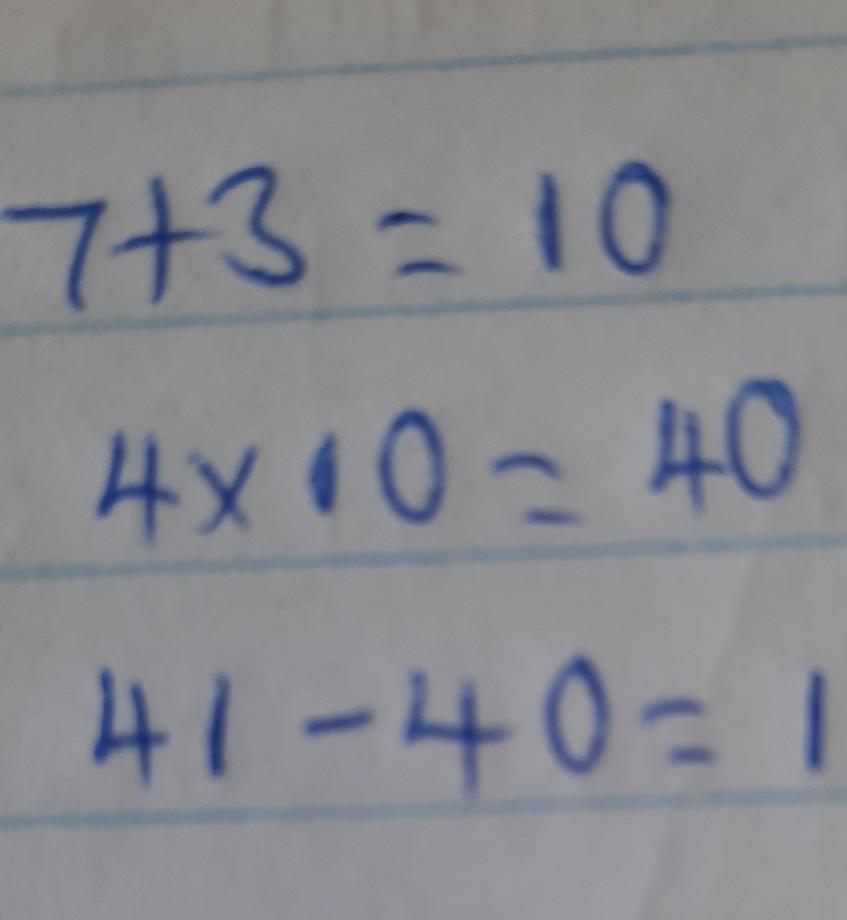 7+3 = 10
4x10 = 40
41-40= 1